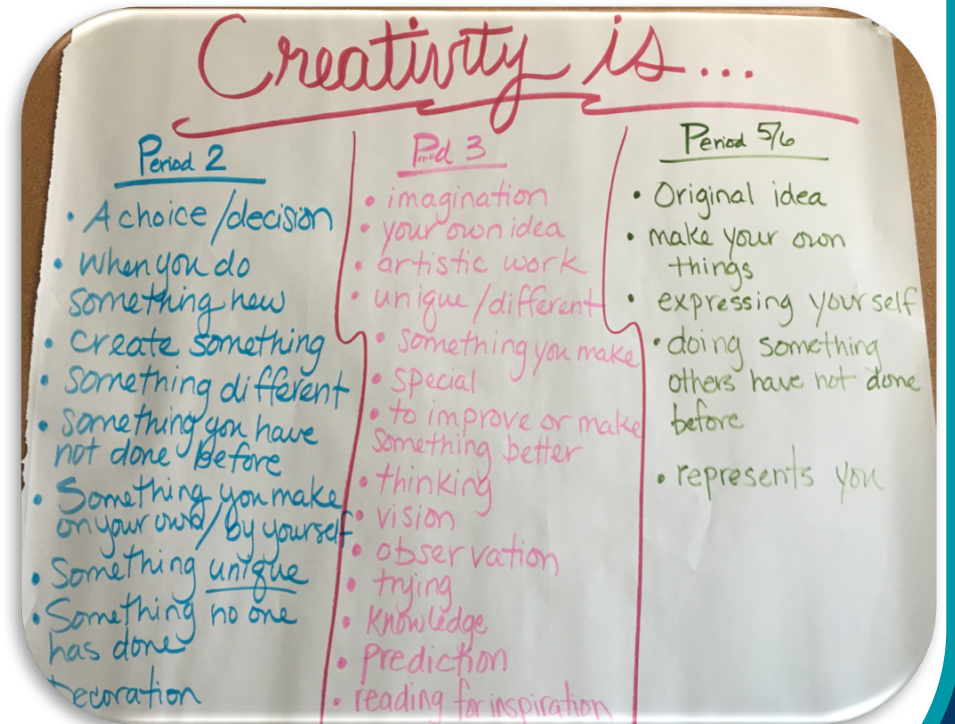 Creativity is...
Period 2
• A choice/decision
• when you do
something new
• create something
• something different
• something you have
not done before
• Something you make
on your own/by yourself
• Something unique
• Something no one
has done
Decoration
Period 3
• imagination
• your own idea
• artistic work
• unique/different
• something you make
• special
• to improve or make
something better
• thinking
• vision
• observation
• trying
• knowledge
• prediction
• reading for inspiration
Period 5/6
• Original idea
• make your own
things
• expressing yourself
• doing something
others have not done
before
• represents you